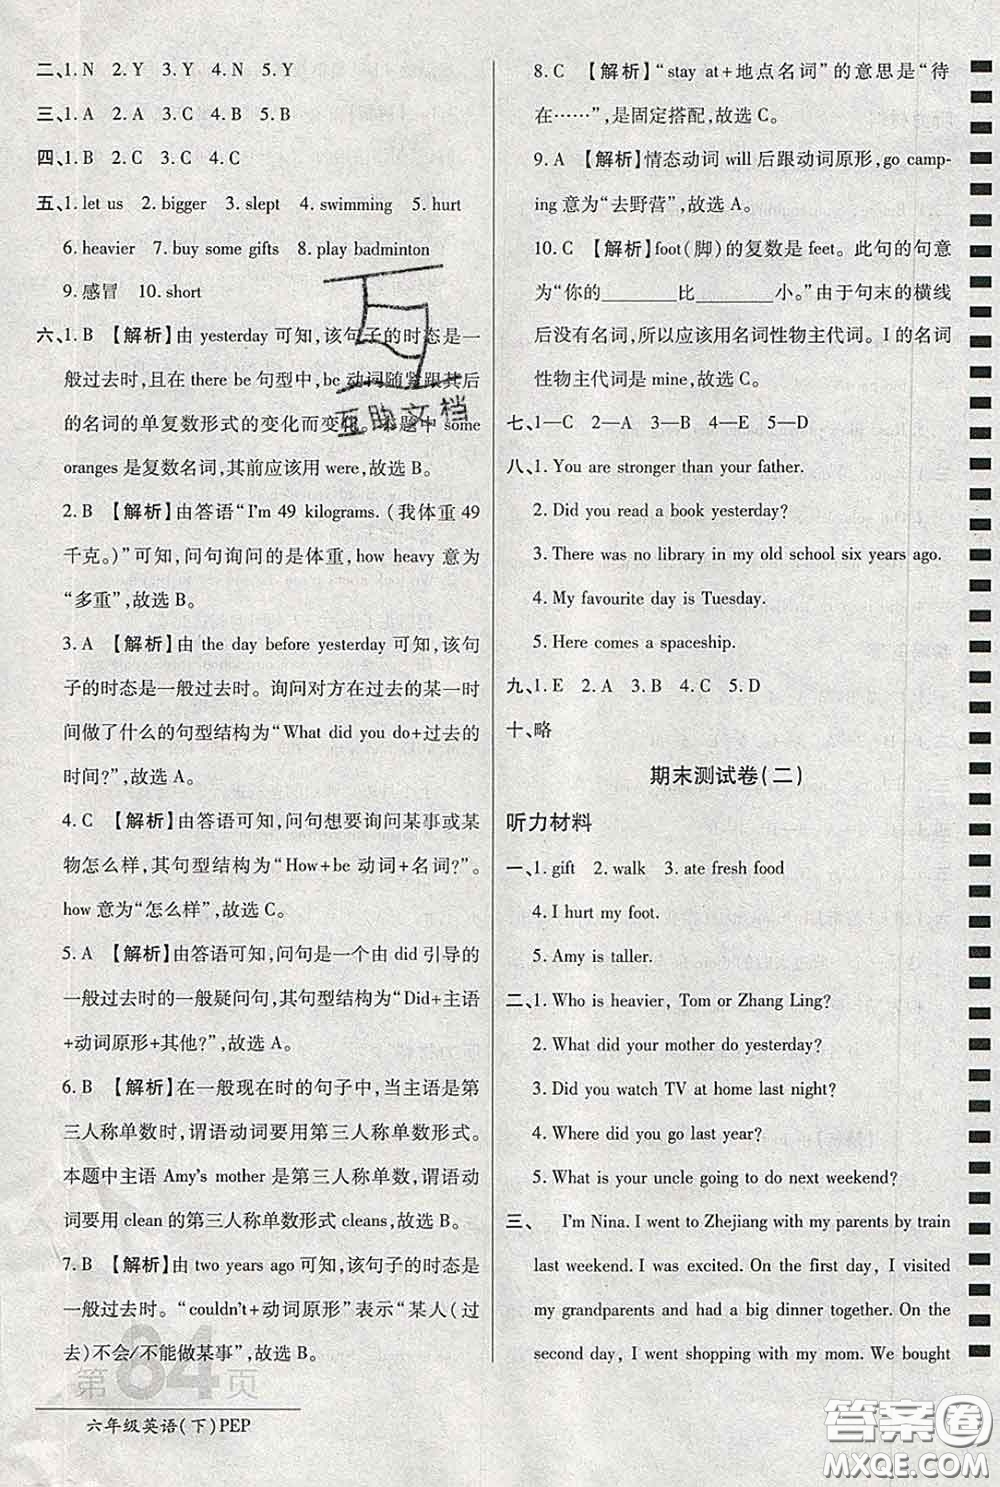 二、1. N 2. Y 3. Y 4. N 5. Y
三、1. A 2. A 3. C 4. B 5. B
四、1. B 2. C 3. C 4. C
五、1. let us 2. bigger 3. slept 4. swimming 5. hurt
6. heavier 7. buy some gifts 8. play badminton
9. 感冒 10. short
六、1. B 【解析】由 yesterday 可知,该句子的时态是一
般过去时,且在 there be 句型中,be 动词随紧跟其后
的名词的单复数形式的变化而变化。本题中 some
oranges 是复数名词,其前应该用 were,故选 B。
2. B 【解析】由答语“I'm 49 kilograms. (我体重 49
千克。)”可知,问句询问的是体重,how heavy 意为
“多重”,故选 B。
3. A 【解析】由 the day before yesterday 可知,该句
子的时态是一般过去时。询问对方在过去的某一时
间做了什么的句型结构为“What did you do+过去的
时间?”,故选 A。
4. C 【解析】由答语可知,问句想要询问某事或某
物怎么样,其句型结构为“How+be 动词+名词?”。
how 意为“怎么样”,故选 C。
5. A 【解析】由答语可知,问句是一个由 did 引导的
一般过去时的一般疑问句,其句型结构为“Did+主语
+动词原形+其他?”,故选 A。
6. B 【解析】在一般现在时的句子中,当主语是第
三人称单数时,谓语动词要用第三人称单数形式。
本题中主语 Amy's mother 是第三人称单数,谓语动
词要用 clean 的第三人称单数形式 cleans,故选 B。
7. B 【解析】由 two years ago 可知,该句子的时态是
一般过去时。“couldn't+动词原形”表示“某人(过
去)不会/不能做某事”,故选 B。
第84页
六年级英语(下)PEP
8. C 【解析】“stay at+地点名词”的意思是“待
在……”,是固定搭配,故选 C。
9. A 【解析】情态动词 will 后跟动词原形,go camp-
ing 意为“去野营”,故选 A。
10. C 【解析】foot(脚)的复数是 feet。此句的句意
为“你的________比________小。”由于句末的横线
后没有名词,所以应该用名词性物主代词。I 的名词
性物主代词是 mine,故选 C。
七、1—C 2—A 3—E 4—B 5—D
八、1. You are stronger than your father.
2. Did you read a book yesterday?
3. There was no library in my old school six years ago.
4. My favourite day is Tuesday.
5. Here comes a spaceship.
九、1. E 2. A 3. B 4. C 5. D
十、略
期末测试卷(二)
听力材料
一、1. gift 2. walk 3. ate fresh food
4. I hurt my foot.
5. Amy is taller.
二、1. Who is heavier, Tom or Zhang Ling?
2. What did your mother do yesterday?
3. Did you watch TV at home last night?
4. Where did you go last year?
5. What is your uncle going to do next weekend?
三、 I'm Nina. I went to Zhejiang with my parents by train
last weekend. I was excited. On the first day, I visited
my grandparents and had a big dinner together. On the
second day, I went shopping with my mom. We bought
互助文档
答案圈
MXQE.COM